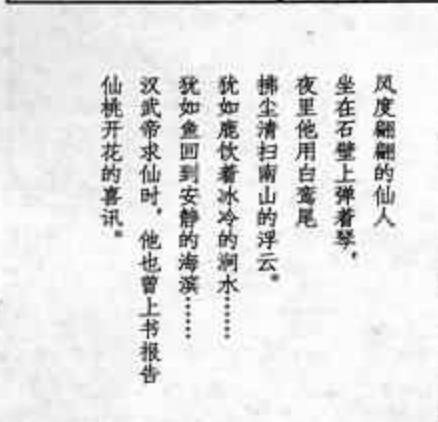 风度翩翩的仙人
坐在石壁上弹着琴，
夜里他用白鸾尾
拂尘清扫南山的浮云。
犹如鹿饮着冰冷的涧水……
犹如鱼回到安静的海滨……
汉武帝求仙时，他也曾上书报告
仙桃开花的喜讯。